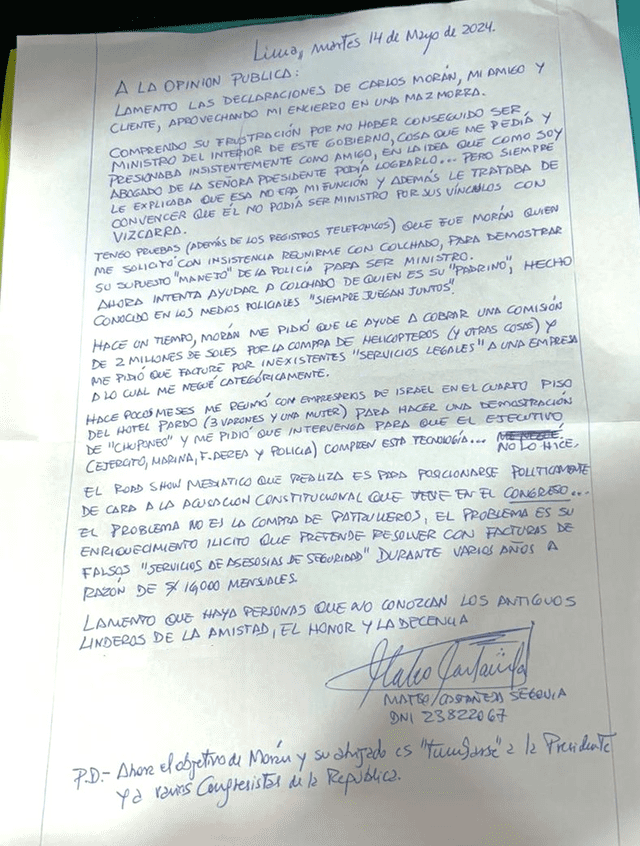 Lima, martes 14 de Mayo de 2024.
A LA OPINION PUBLICA:
LAMENTO LAS DECLARACIONES DE CARLOS MORÁN, MI AMIGO Y
CLIENTE, APROVECHANDO MI ENCIERRO EN UNA MAZMORRA.
COMPRENDO SU FRUSTRACIÓN POR NO HABER CONSEGUIDO SER
MINISTRO DEL INTERIOR DE ESTE GOBIERNO, COSA QUE ME PEDÍA Y
PRESIONABA INSISTENTEMENTE COMO AMIGO, EN LA IDEA QUE COMO SOY
ABOGADO DE LA SEÑORA PRESIDENTE PODÍA LOGRARLO... PERO SIEMPRE
LE EXPLICABA QUE ESA NO ERA MI FUNCIÓN Y ADEMÁS LE TRATABA DE
CONVENCER QUE ÉL NO PODÍA SER MINISTRO POR SUS VÍNCULOS CON
VIZCARRA.
TENGO PRUEBAS (ADEMÁS DE LOS REGISTROS TELEFONICOS) QUE FUE MORÁN QUIEN
ME SOLICITÓ CON INSISTENCIA REUNIRME CON COLCHADO, PARA DEMOSTRAR
SU SUPUESTO "MANEJO" DE LA POLICÍA PARA SER MINISTRO.
AHORA INTENTA AYUDAR A COLCHADO DE QUIEN ES SU "PADRINO", HECHO
CONOCIDO EN LOS MEDIOS POLICIALES "SIEMPRE JUEGAN JUNTOS".
HACE UN TIEMPO, MORÁN ME PIDIÓ QUE LE AYUDE A COBRAR UNA COMISIÓN
DE 2 MILLONES DE SOLES POR LA COMPRA DE HELICOPTEROS (Y OTRAS COSAS) Y
ME PIDIÓ QUE FACTURE POR INEXISTENTES "SERVICIOS LEGALES" A UNA EMPRESA
A LO CUAL ME NEGUÉ CATEGÓRICAMENTE.
HACE POCOS MESES ME REUNIÓ CON EMPRESARIOS DE ISRAEL EN EL CUARTO PISO
DEL HOTEL PARDO (3 VARONES Y UNA MUJER) PARA HACER UNA DEMOSTRACIÓN
DE "CHUPONEO" Y ME PIDIÓ QUE INTERVENGA PARA QUE EL EJECUTIVO
(EJERCITO, MARINA, F. AEREA Y POLICIA) COMPREN ESTA TECNOLOGÍA... ME NEGUÉ
NO LO HICE.
EL ROAD SHOW MEDIATICO QUE REALIZA ES PARA POSICIONARSE POLITICAMENTE
DE CARA A LA ACUSACION CONSTITUCIONAL QUE TIENE EN EL CONGRESO...
EL PROBLEMA NO ES LA COMPRA DE PATRULLEROS, EL PROBLEMA ES SU
ENRIQUECIMIENTO ILICITO QUE PRETENDE RESOLVER CON FACTURAS DE
FALSOS "SERVICIOS DE ASESOSIAS DE SEGURIDAD" DURANTE VARIOS AÑOS A
RAZÓN DE S/ 16,000 MENSUALES.
LAMENTO QUE HAYA PERSONAS QUE NO CONOZCAN LOS ANTIGUOS
LINDEROS DE LA AMISTAD, EL HONOR Y LA DECENCIA
MATEO CASTAÑEDA SEGOVIA
DNI 23822067
P.D.- Ahora el objetivo de Morán y su ahijado es "tumbarse" a la Presidente
y a varios Congresistas de la República.